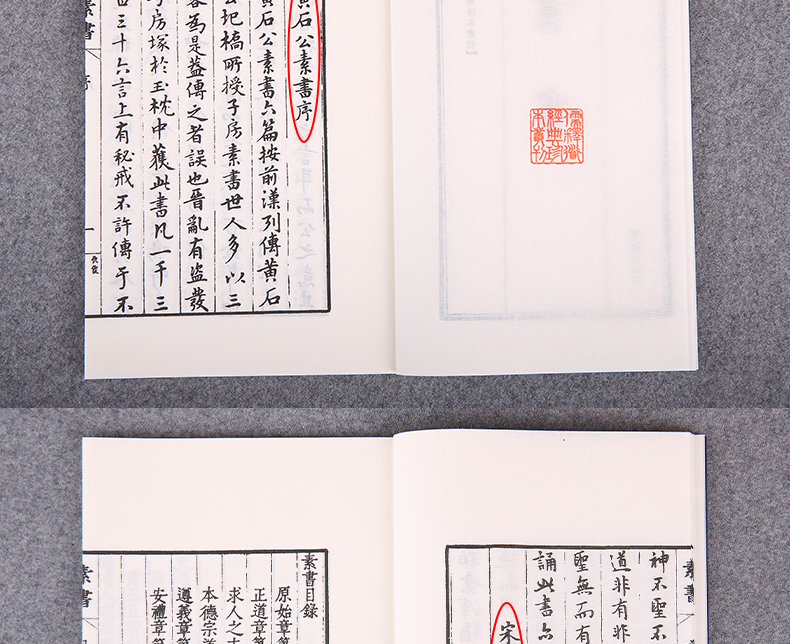 儒釋道
經典珍
本叢刊
黃石公素書序
黃石公素書六篇按前漢列傳黃石
公圯橋所授子房素書世人多以三
畧為是蓋傳之者誤也晉亂有盜發
子房塚於玉枕中獲此書凡一千三
百三十六言上有秘戒不許傳于不
素書 序
一
素書
神不聖不
道非有非
聖無而有
誦此書六
宋
素書目録
原始章第
正道章第
求人之志
本德宗道
遵義章第
安禮章第
素書